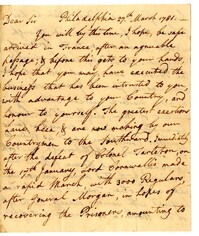 Dear Sir Philadelphia 27th March 1781.
You will by this time, I hope, be safe
arrived in France, after an agreeable
passage; & before this gets to your hands,
I hope that you may have executed the
business that has been intrusted to you
with advantage to your Country, and
honour to yourself. The greatest exertions
have been, & are now making by our
Countrymen to the Southward, immediately
after the defeat of Colonel Tarleton, on
the 17th January, Lord Cornwallis made
a rapid March, with 3000 Regulars
after General Morgan, in hopes of
recovering the Prisoners, amounting to